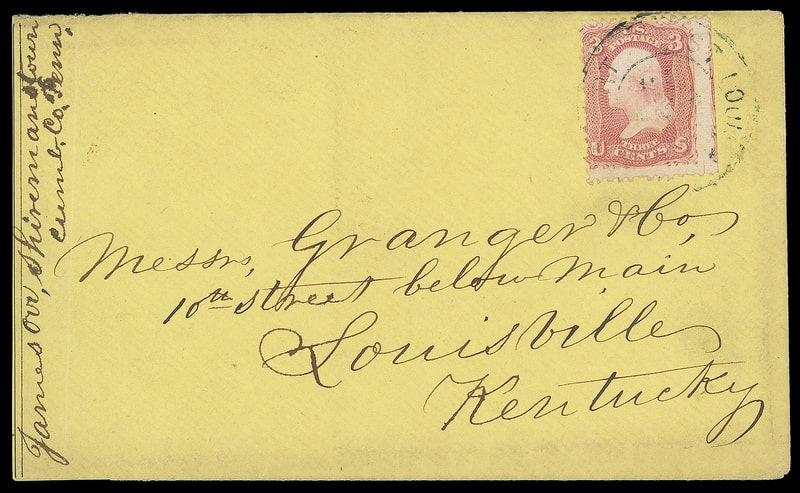 James Orr, Shiremanstown
Cumb. Co. Penn.
U.S.
POSTAGE
3 3
U S
THREE
CENTS
ST LOUIS
Messrs, Granger & Co,
10th street below Main
Louisville
Kentucky